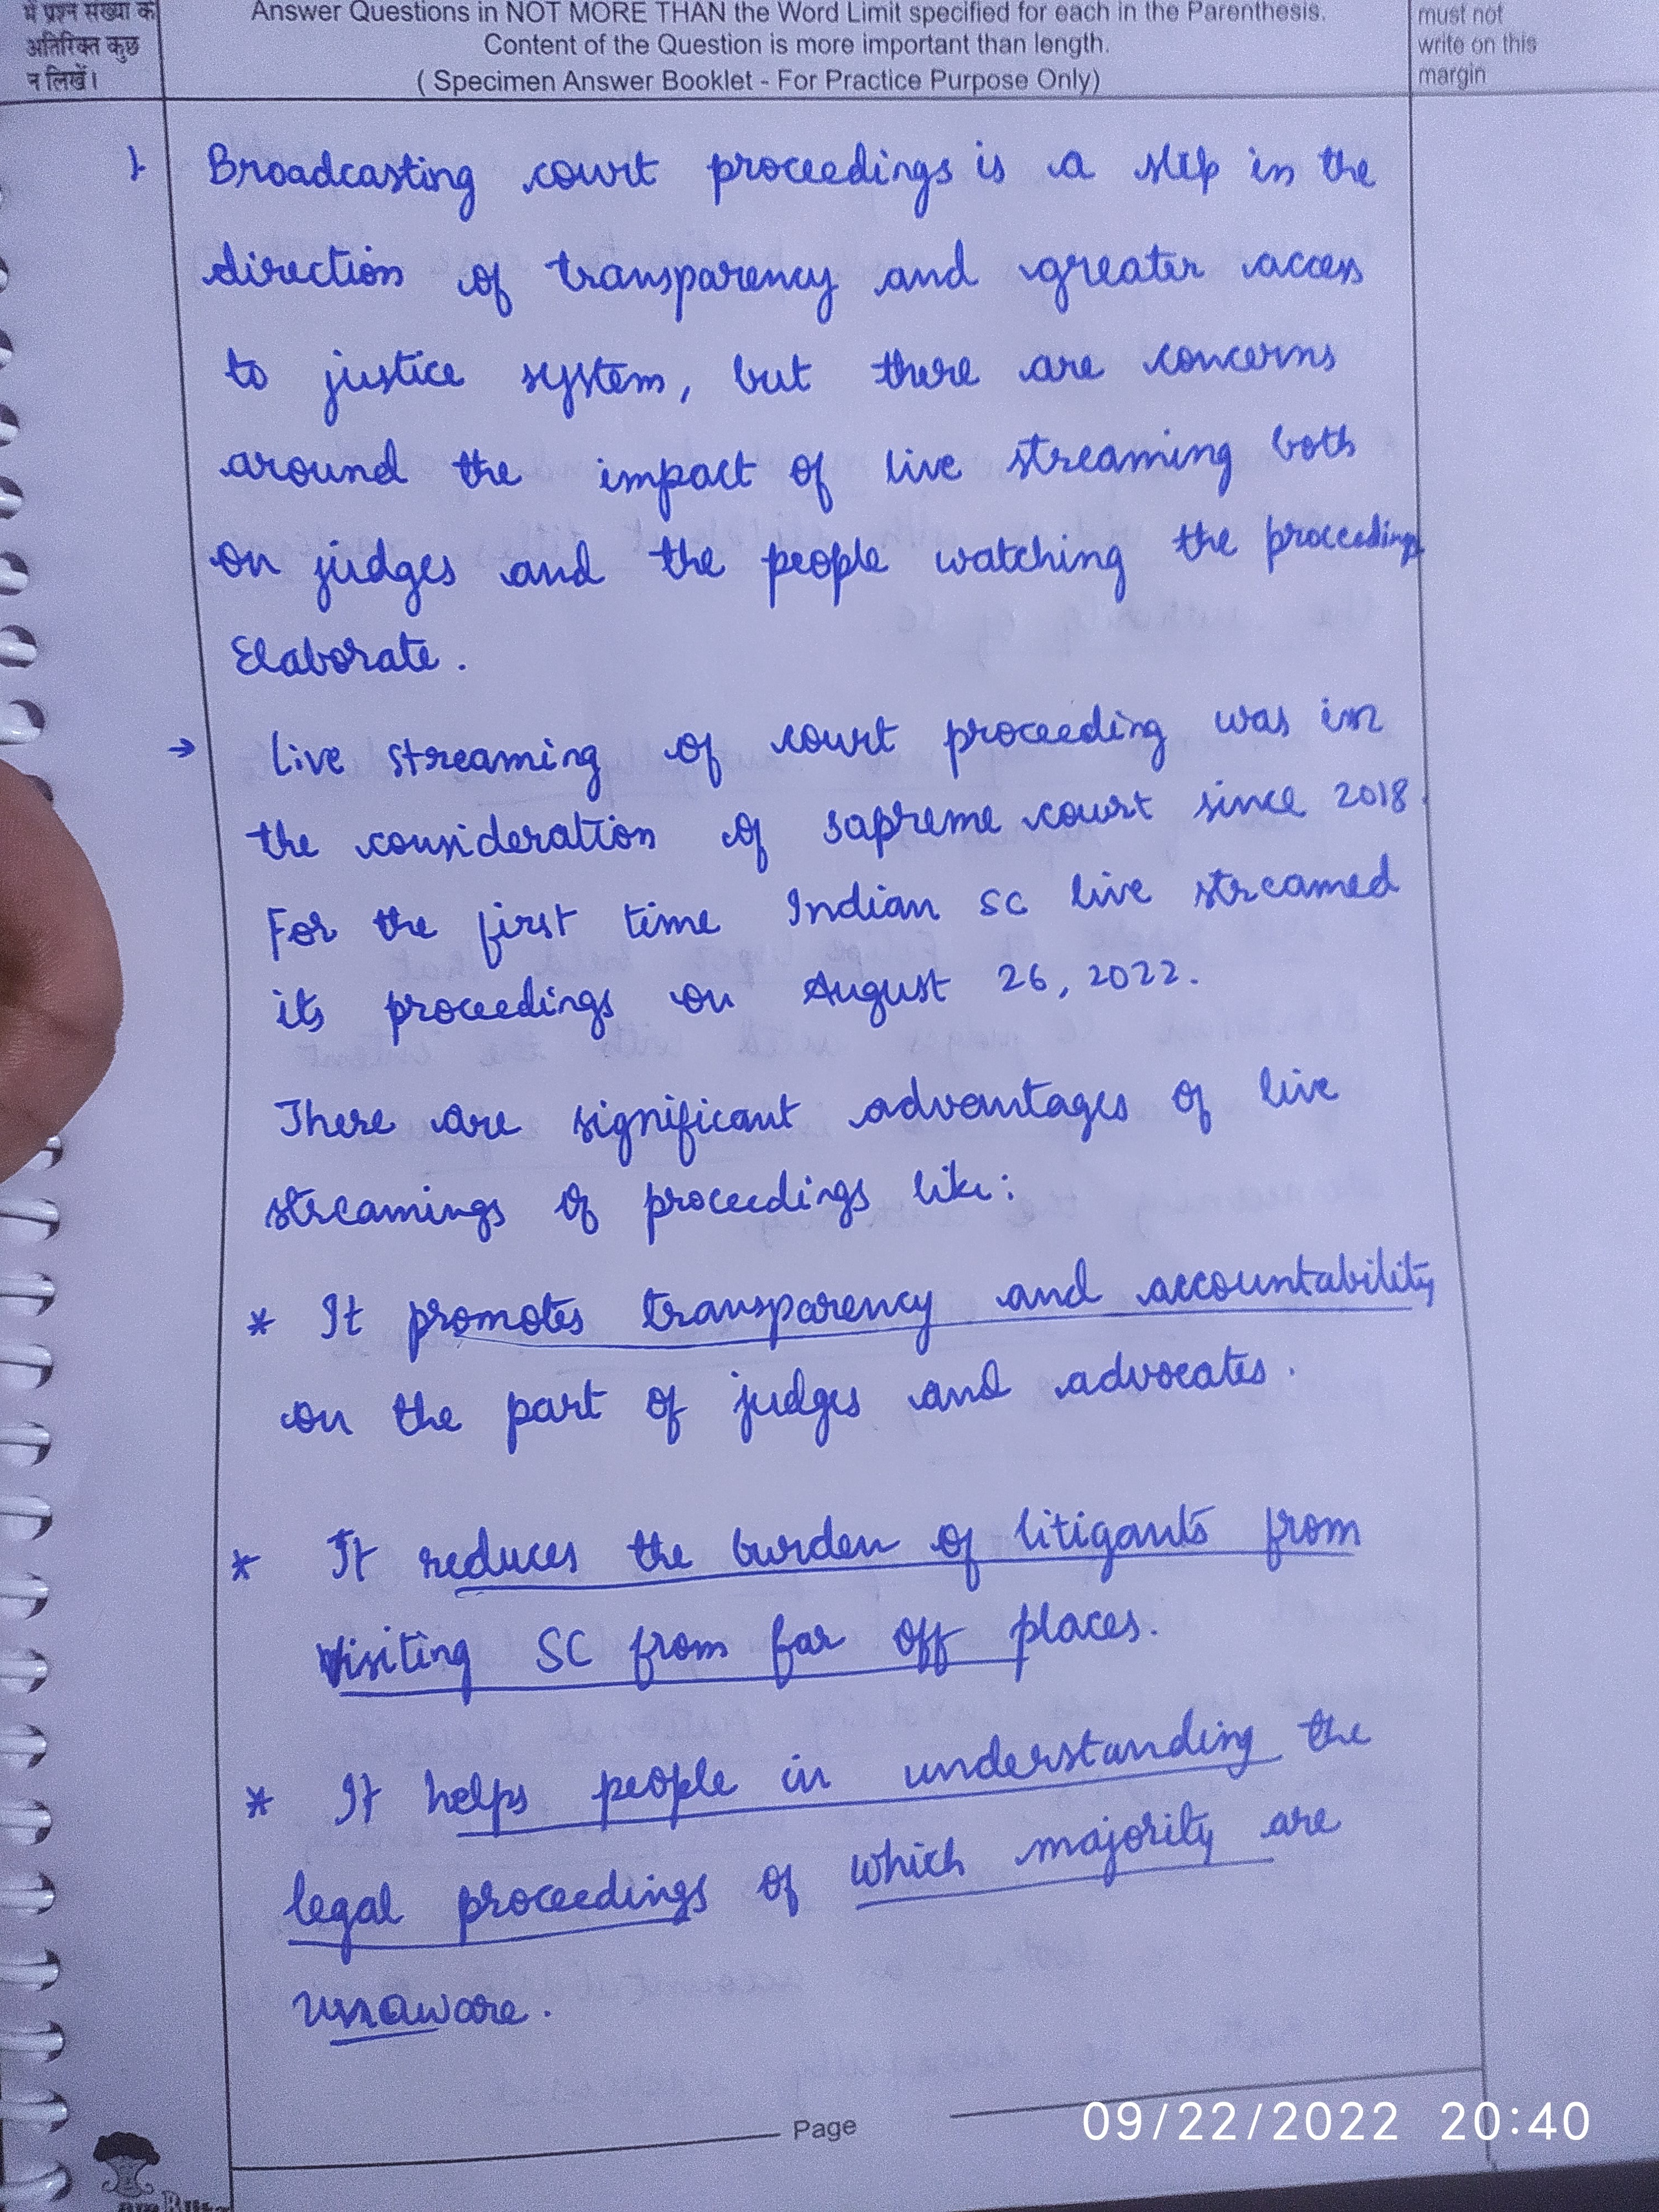 में प्रश्न संख्या के
अतिरिक्त कुछ
न लिखें।
Answer Questions in NOT MORE THAN the Word Limit specified for each in the Parenthesis.
Content of the Question is more important than length.
( Specimen Answer Booklet - For Practice Purpose Only)
must not
write on this
margin
1 Broadcasting court proceedings is a step in the
direction of transparency and greater access
to justice system, but there are concerns
around the impact of live streaming both
on judges and the people watching the proceedings
Elaborate.
→ Live streaming of court proceeding was in
the consideration of sapreme court since 2018.
For the first time Indian SC live streamed
its proceedings on August 26, 2022.
There are significant advantages of live
streamings of proceedings like:
* It promotes transparency and accountability
on the part of judges and advocates.
* It reduces the burden of litigants from
visiting SC from far off places.
* It helps people in understanding the
legal proceedings of which majority are
unaware.
Page
09/22/2022 20:40